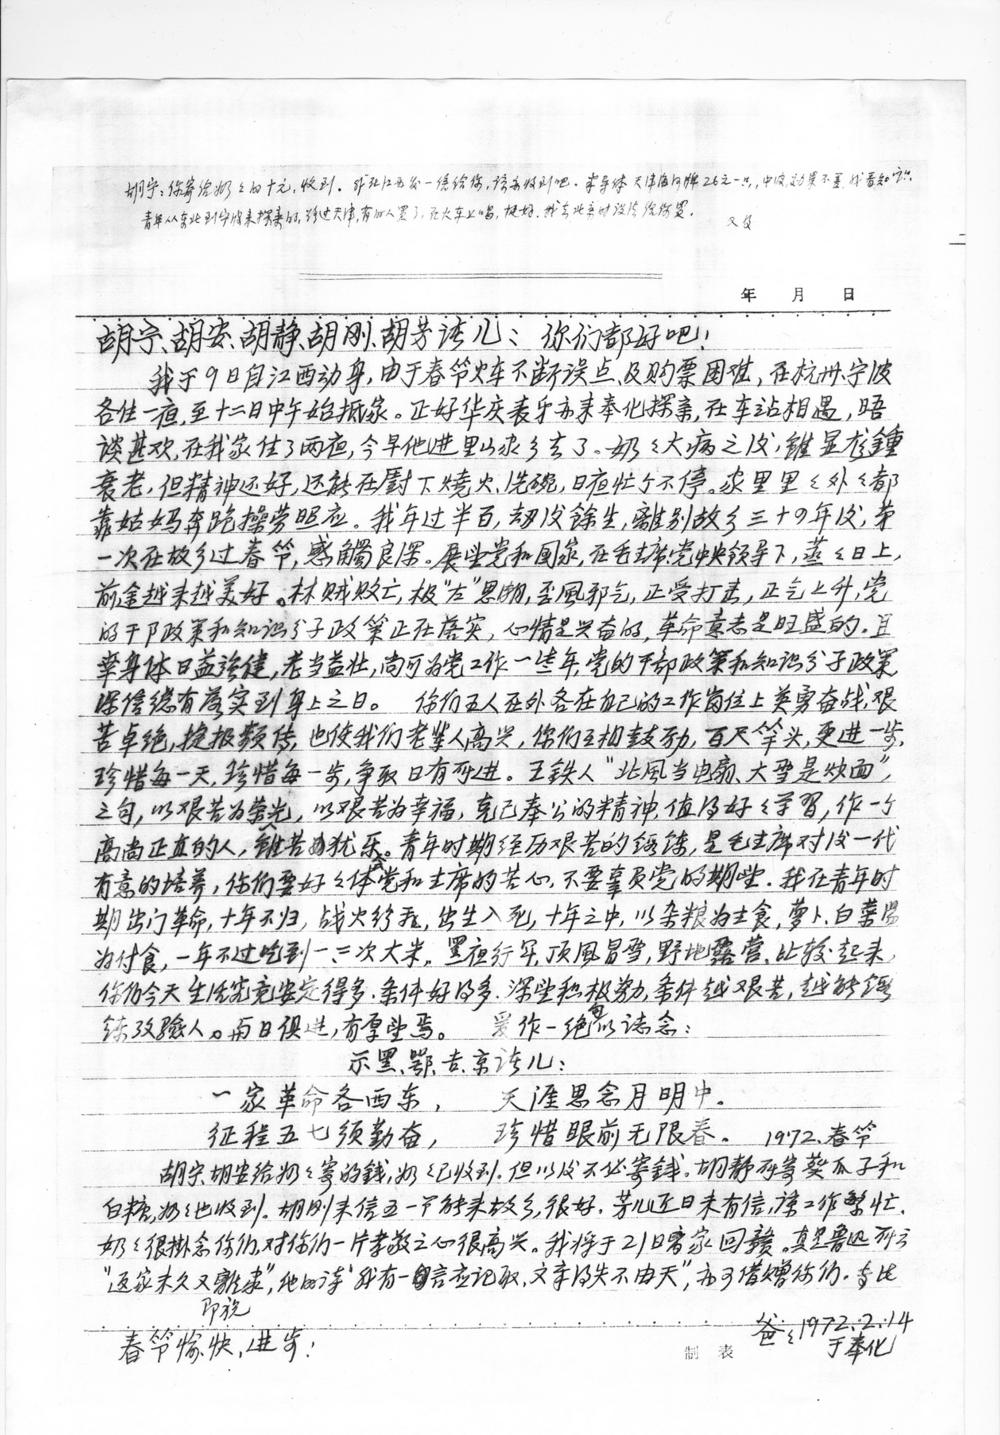 胡宁：你寄给奶〻的十元，收到。我在江西发一信给你，该亦收到吧。半导体天津海河牌26元一只，中波，效果不差，我看知识
青年从东北到宁波来探亲的，路过天津，有的人买了，在火车上唱，挺好。我去北京时设法给你买。
又及
年 月 日
胡宁、胡安、胡静、胡刚、胡芳诸儿：你们都好吧！
我于9日自江西动身，由于春节火车不断误点，及购票困难，在杭州、宁波
各住一夜，至十二日中午始抵家。正好华庆表兄亦来奉化探亲，在车站相遇，晤
谈甚欢，在我家住了两夜，今早他进里山求乡去了。奶〻大病之后，虽显龙鍾
衰老，但精神还好，还能在厨下燒火、洗碗，日夜忙个不停。家里里〻外〻都
靠姑妈奔跑操劳照应。我年过半百，劫后餘生，離别故乡三十四年后，第
一次在故乡过春节，感觸良深。展望党和国家，在毛主席党中央领导下，蒸〻日上，
前途越来越美好。林贼败亡，极“左”思潮，歪風邪气，正受打击，正气上升，党
的干部政策和知识分子政策正在落实，心情是兴奋的，革命意志是旺盛的。且
幸身体日益強健，老当益壮，尚可为党工作一些年，党的干部政策和知识分子政策
深信總有落实到身上之日。 你们五人在外各在自己的工作岗位上英勇奋战，艰
苦卓绝，捷报频传，也使我们老辈人高兴，你们互相鼓励，百尺竿头，更进一步，
珍惜每一天，珍惜每一步，争取日有所进。王铁人“北風当电扇、大雪是炒面”，
之句，以艰苦为榮光，以艰苦为幸福，克己奉公的精神，值得好〻学習，作一个
高尚正直的人，雖苦为犹乐。青年时期经历艰苦的锻炼，是毛主席对后一代
有意的培养，你们要好〻体会党和主席的苦心，不要辜负党的期望。我在青年时
期出门革命，十年不归，战火纷飞，出生入死，十年之中，以杂粮为主食，萝卜、白菜湯
为付食，一年不过吃到一、二次大米。黑夜行军，顶風冒雪，野地露营。比较起来，
你们今天生活究竟安定得多，条件好得多。深望积极努力，条件越艰苦，越能锻
鍊考驗人。与日俱进，有厚望焉。 爰作一绝句以誌念：
示黑、鄂、吉、京诸儿：
一家革命各西东， 天涯思念月明中。
征程五七须勤奋， 珍惜眼前无限春。 1972.春节
胡宁、胡安给奶〻寄的錢，奶〻已收到。但以后不必寄錢。胡静所寄葵瓜子和
白糖，奶〻也收到。胡刚来信五一节能来故乡，很好。芳儿近日未有信，谅工作繁忙。
奶〻很掛念你们，对你们一片孝敬之心很高兴。我将于21日离家回赣。真是魯迅所云
“返家未久又離家”，他的诗“我有一言应记取，文章得失不由天”，亦可借赠你们。专此
即祝
春节愉快，进步！
爸〻1972.2.14
于奉化
制表